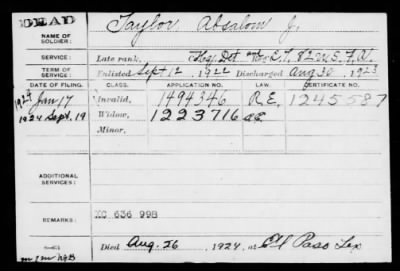 DEAD
NAME OF SOLDIER: Taylor Absalom J.
SERVICE: Late rank, Hosp. Det and Co E, 7 & 20 U.S. Inf.
TERM OF SERVICE: Enlisted Sept 12, 1922 Discharged Aug 30, 1923
DATE OF FILING. CLASS. APPLICATION NO. CERTIFICATE NO.
1924 Jan 17 Invalid, 1494346 R.E. 1245587
1924 Sept. 19 Widow, 1223716
Minor,
ADDITIONAL SERVICES:
REMARKS: XC 636 998
Died Aug. 26, 1924, at El Paso Tex